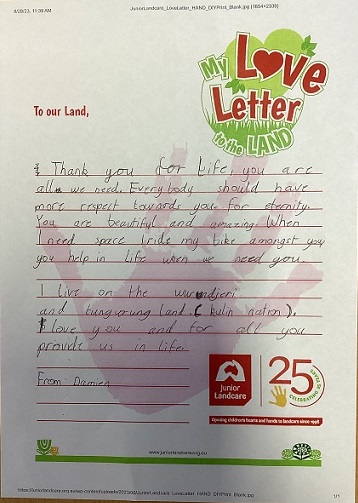 8/29/23, 11:30 AM
JuniorLandcare_LoveLetter_HAND_DIYPrint_Blank.jpg (1654×2339)
My Love
Letter
to the LAND
To our Land,
Thank you for life, you are
all we need. Everybody should have
more respect towards you for eternity.
You are beautiful and amazing. When
I need space I ride my bike amongst you
you help in life when we need you.
I live on the wurundjeri
and tungurung land. ( kulin nation ).
I love you and for all you
provide us in life.
From Damien
Junior
Landcare
25
CELEBRATING
Opening children's hearts and hands to landcare since 1998
www.juniorlandcare.org.au
1/1